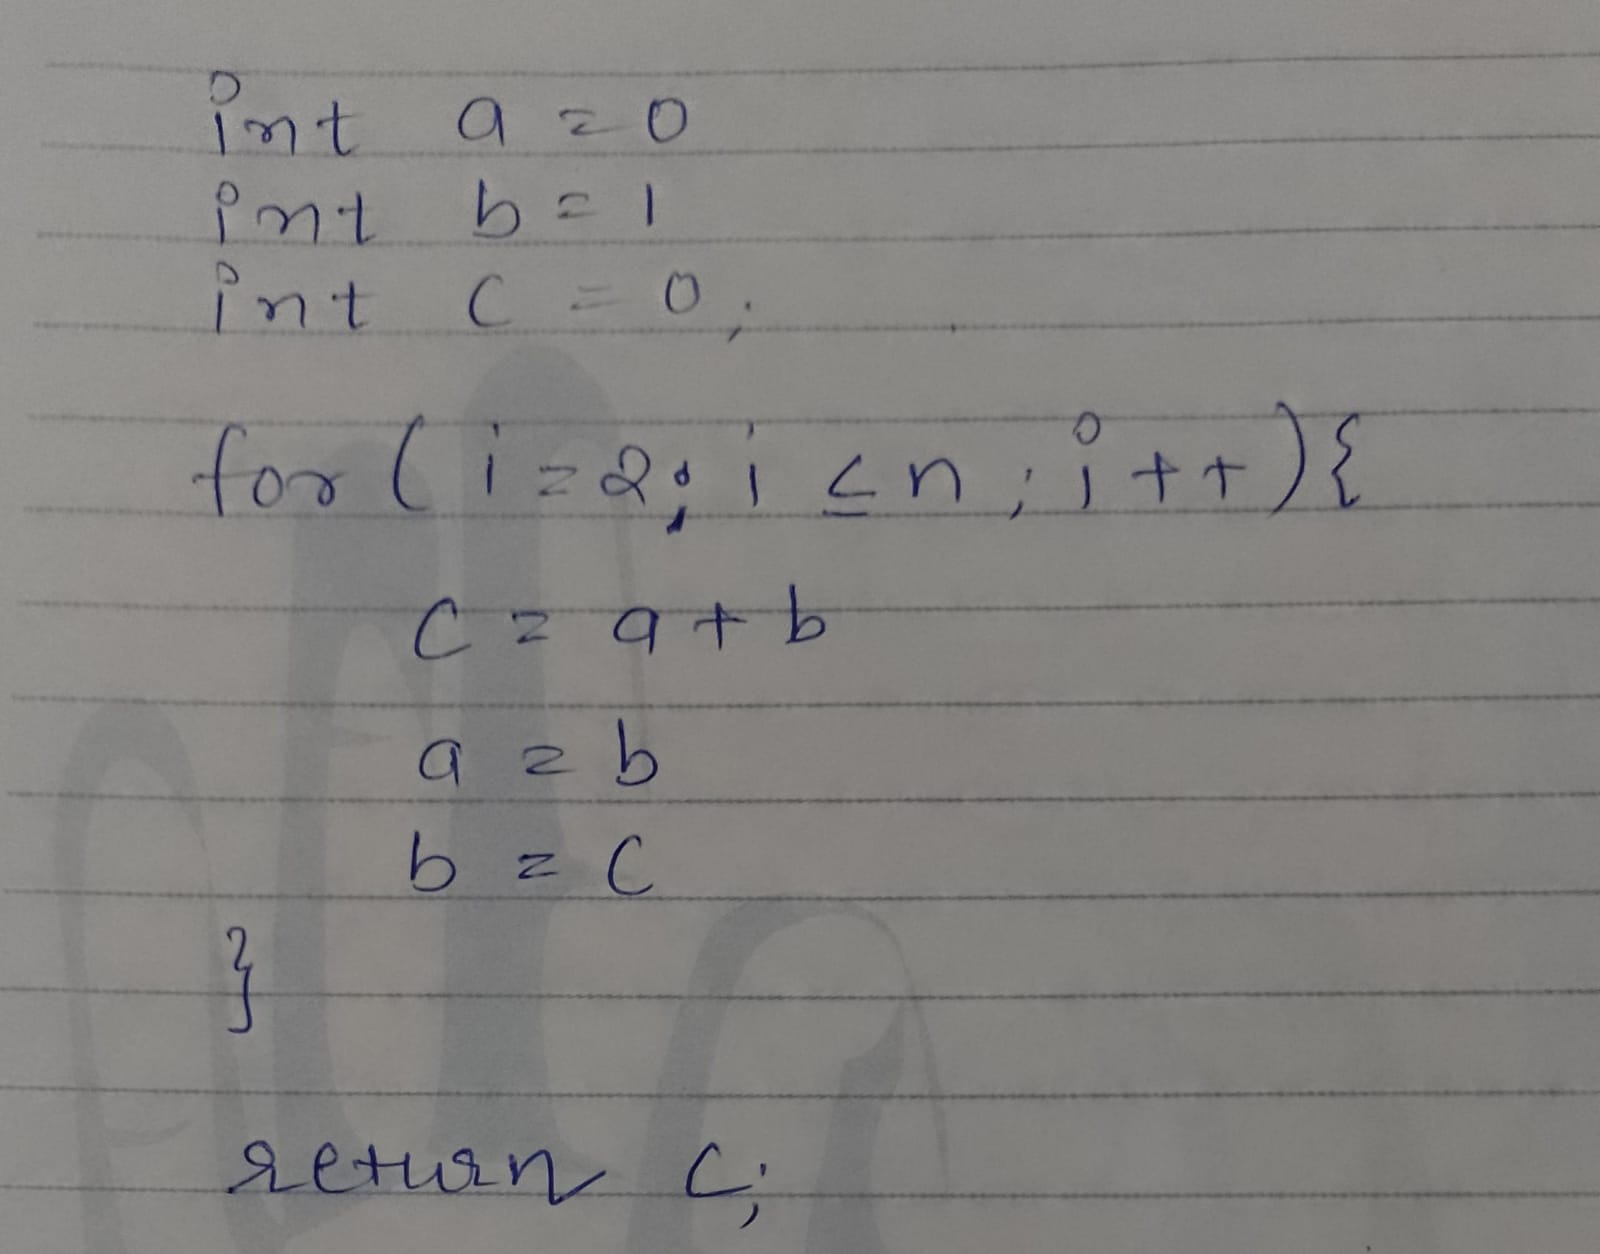 int a = 0
int b = 1
int c = 0;
for ( i = 2; i ≤ n ; i ++ ) {
c = a + b
a = b
b = c
}
return c;